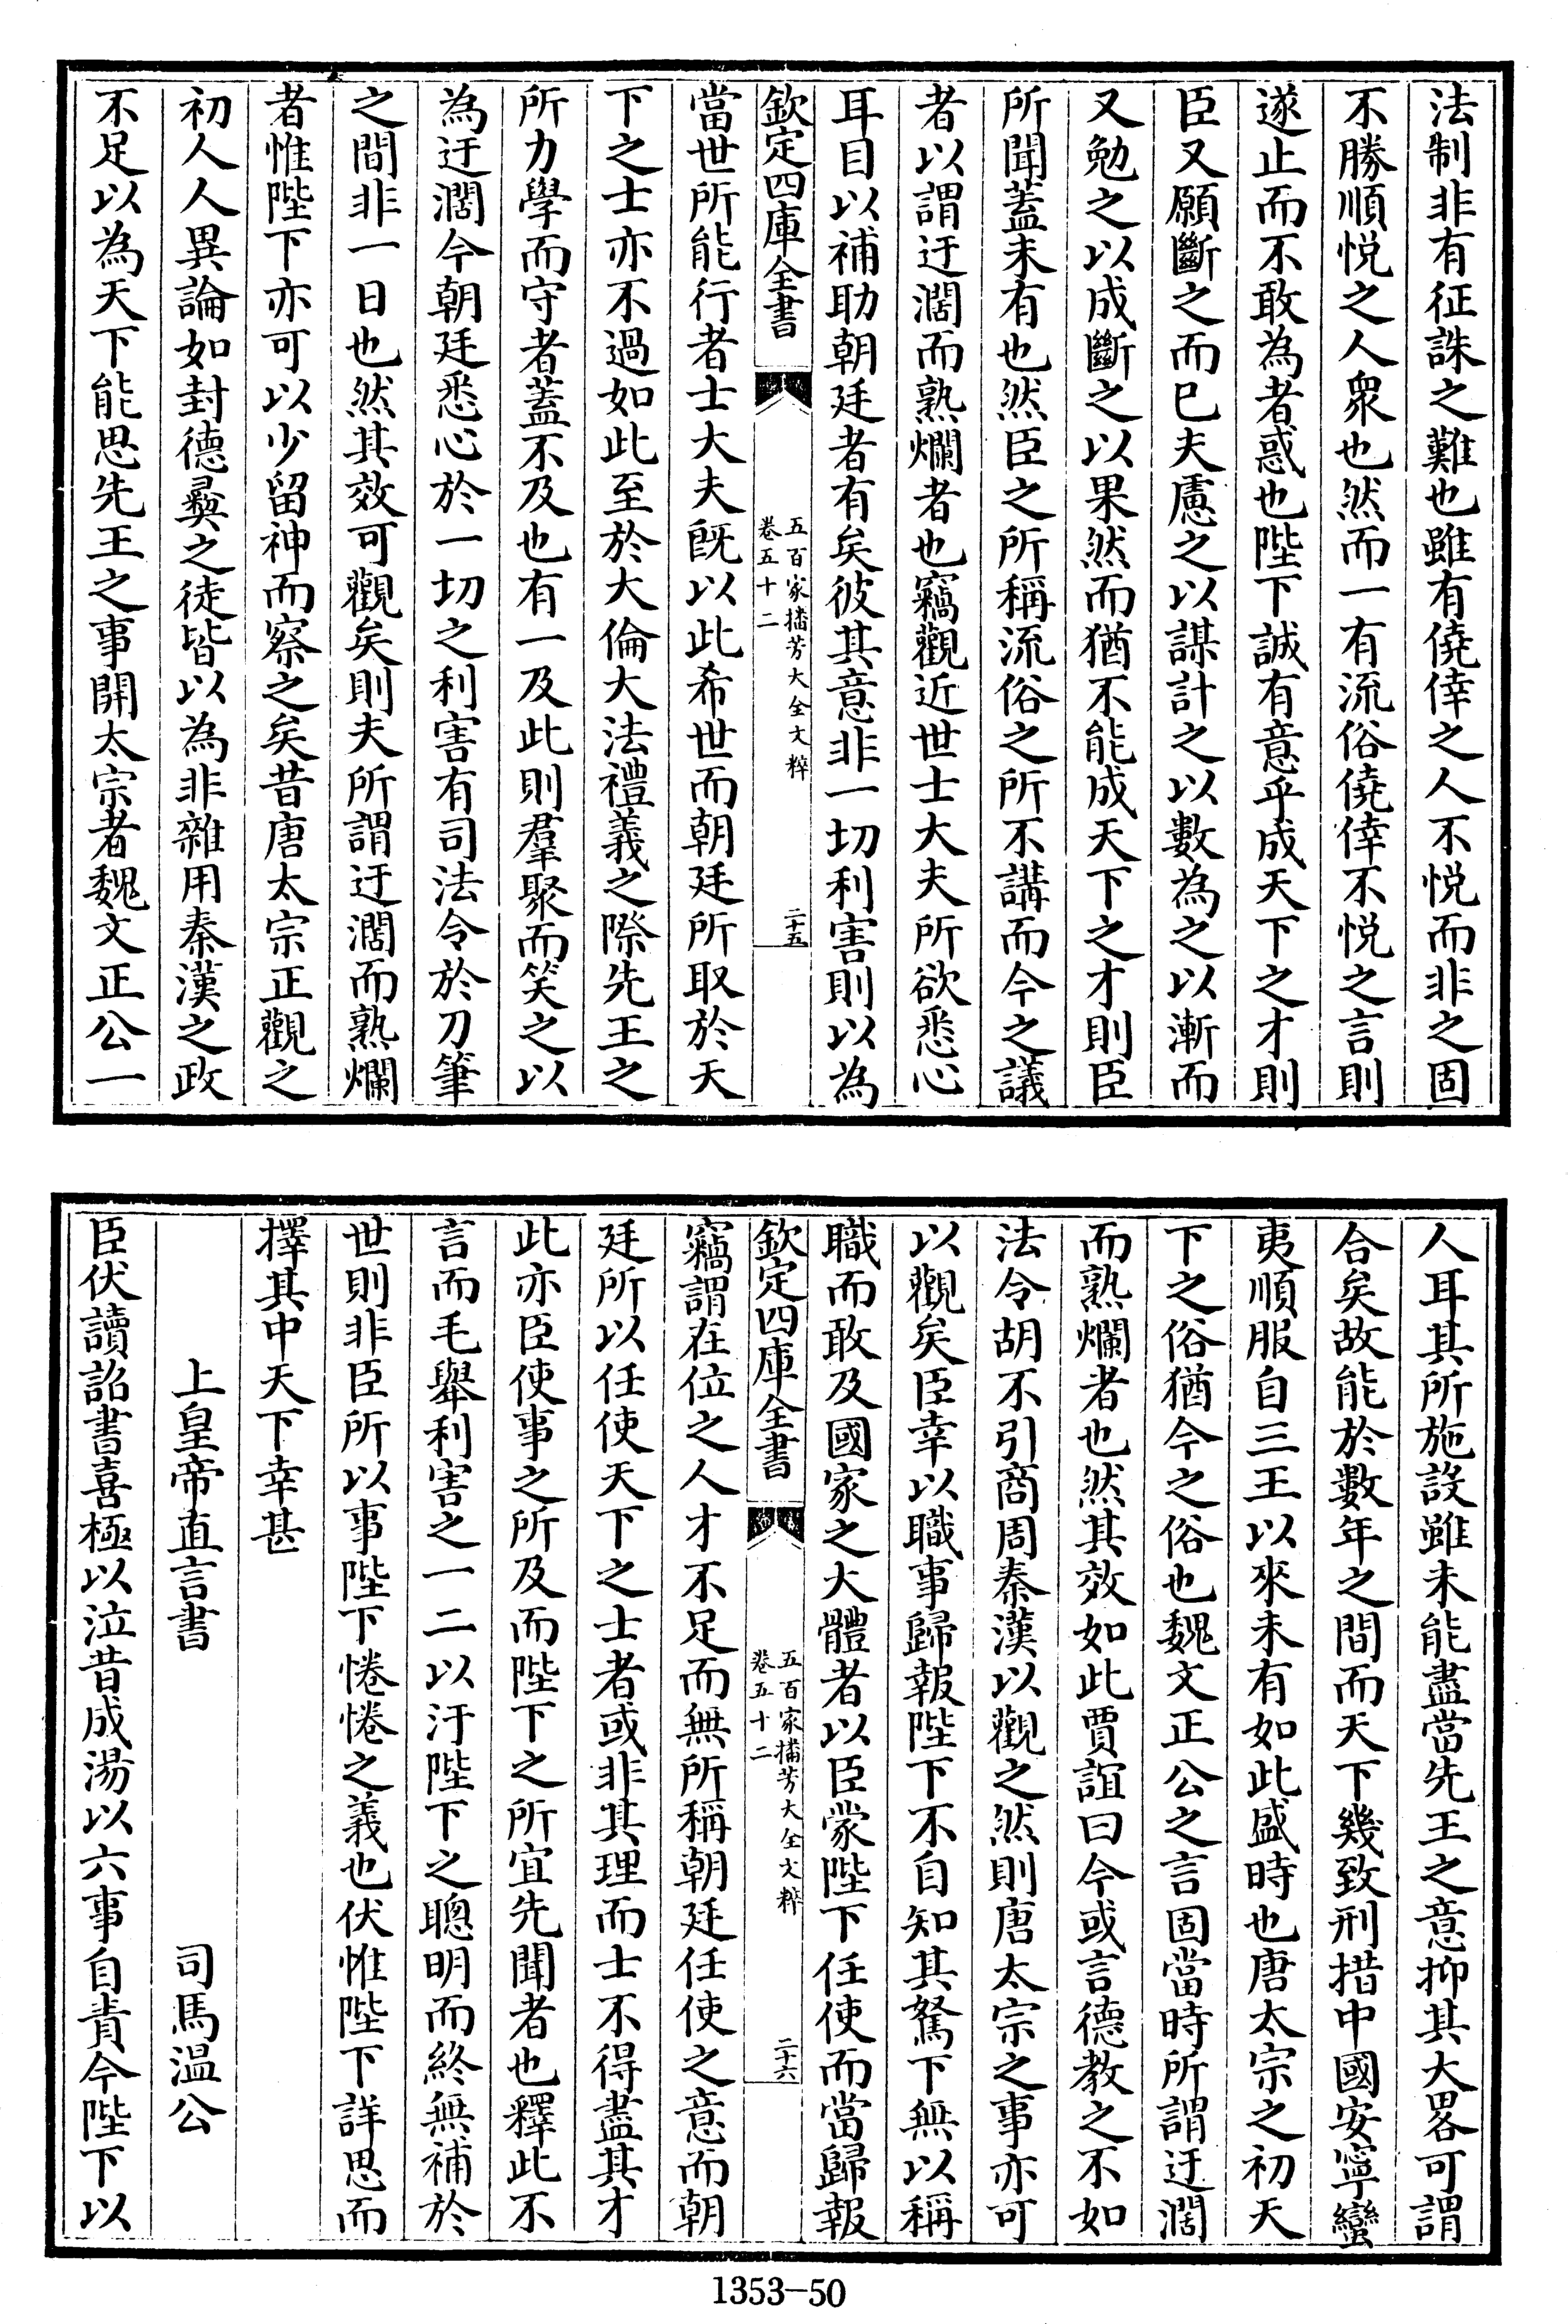 法制非有征誅之難也雖有僥倖之人不悦而非之固
不勝順悦之人衆也然而一有流俗僥倖不悦之言則
遂止而不敢為者惑也陛下誠有意乎成天下之才則
臣又願斷之而已夫慮之以謀計之以數為之以漸而
又勉之以成斷之以果然而猶不能成天下之才則臣
所聞蓋未有也然臣之所稱流俗之所不講而今之議
者以謂迂濶而熟爛者也竊觀近世士大夫所欲悉心
耳目以補助朝廷者有矣彼其意非一切利害則以為
欽定四庫全書
五百家播芳大全文粹
卷五十二
二十五
當世所能行者士大夫既以此希世而朝廷所取於天
下之士亦不過如此至於大倫大法禮義之際先王之
所力學而守者蓋不及也有一及此則羣聚而笑之以
為迂濶今朝廷悉心於一切之利害有司法令於刀筆
之間非一日也然其效可觀矣則夫所謂迂濶而熟爛
者惟陛下亦可以少留神而察之矣昔唐太宗正觀之
初人人異論如封德彝之徒皆以為非雜用秦漢之政
不足以為天下能思先王之事開太宗者魏文正公一
人耳其所施設雖未能盡當先王之意抑其大畧可謂
合矣故能於數年之間而天下幾致刑措中國安寧蠻
夷順服自三王以來未有如此盛時也唐太宗之初天
下之俗猶今之俗也魏文正公之言固當時所謂迂濶
而熟爛者也然其效如此賈誼曰今或言德教之不如
法令胡不引商周秦漢以觀之然則唐太宗之事亦可
以觀矣臣幸以職事歸報陛下不自知其駑下無以稱
職而敢及國家之大體者以臣蒙陛下任使而當歸報
欽定四庫全書
五百家播芳大全文粹
卷五十二
二十六
竊謂在位之人才不足而無所稱朝廷任使之意而朝
廷所以任使天下之士者或非其理而士不得盡其才
此亦臣使事之所及而陛下之所宜先聞者也釋此不
言而毛舉利害之一二以汙陛下之聰明而終無補於
世則非臣所以事陛下惓惓之義也伏惟陛下詳思而
擇其中天下幸甚
上皇帝直言書　　　司馬温公
臣伏讀詔書喜極以泣昔成湯以六事自責今陛下以
1353-50